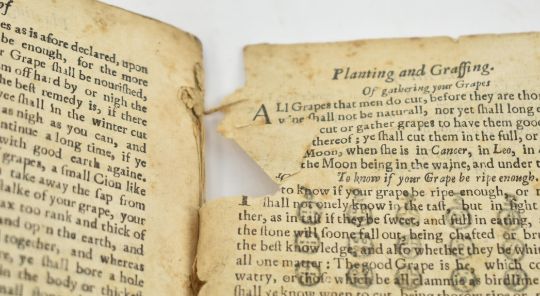 of
es as is afore declared, upon
be enough, for the more
r Grape ſhall be nouriſhed,
m off hard by or nigh the
he beſt remedy is, if there
yee ſhall in the winter cut
as nigh as you can, and
ntinue a long time, if ye
with good earth againe.
grapes, a ſmall Cion like
take away the ſap from
ſtalke of grape, your
ax too rank and thick of
and open the earth, and
together, and whereas
re, ye ſhall bore a hole
in the body or thickeſt
Planting and Graffing.
Of gathering your Grapes
ALl Grapes that men do cut, before they are tho
wine ſhall not be naturall, nor yet ſhall long e
cut or gather grapes to have them good
thereof; ye ſhall cut them in the full, or
Moon, when ſhe is in Cancer, in Leo, in
the Moon being in the wajne, and under t
To know if your Grape be ripe enough.
to know if your grape be ripe enough, or n
ſhall not onely know in the taſt, but in ſight
ther, as in taſt if they be ſweet, and full in eating,
the ſtone will ſoone fall out, being chafted or bru
the beſt knowledge, and alſo whether they be whi
all one matter: The good Grape is he, which co
watry, or thoſe which be all clammie as birdlime
ſhall ye know when to cut, being the